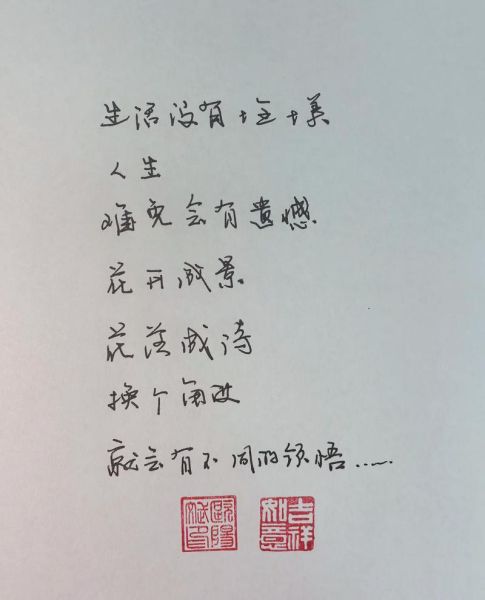 生活没有十全十美
人生
难免会有遗憾.
花开成景.
花落成诗
换个角度
就会有不同的领悟......
歐陽
吉祥如意